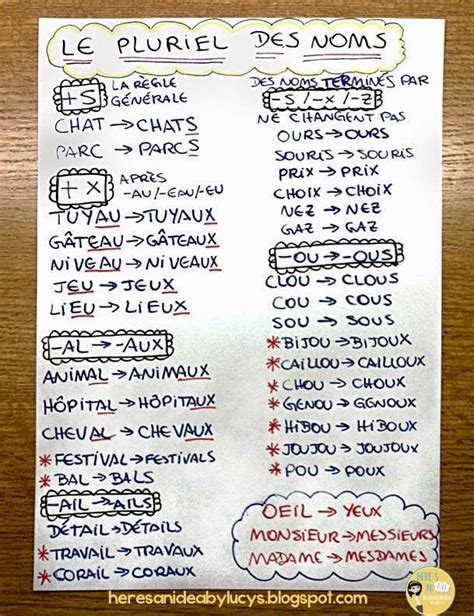 LE PLURIEL DES NOMS
+S
LA RÈGLE
GÉNÉRALE
CHAT → CHATS
PARC → PARCS
+ X
APRÈS
-AU/-EAU/-EU
TUYAU → TUYAUX
GÂTEAU → GÂTEAUX
NIVEAU → NIVEAUX
JEU → JEUX
LIEU → LIEUX
-AL → -AUX
ANIMAL → ANIMAUX
HÔPITAL → HÔPITAUX
CHEVAL → CHEVAUX
* FESTIVAL → FESTIVALS
* BAL → BALS
-AIL → AILS
DÉTAIL → DÉTAILS
* TRAVAIL → TRAVAUX
* CORAIL → CORAUX
DES NOMS TERMINÉS PAR
-S/-X/-Z
NE CHANGENT PAS
OURS → OURS
SOURIS → SOURIS
PRIX → PRIX
CHOIX → CHOIX
NEZ → NEZ
GAZ → GAZ
-OU → -OUS
CLOU → CLOUS
COU → COUS
SOU → SOUS
* BIJOU → BIJOUX
* CAILLOU → CAILLOUX
* CHOU → CHOUX
* GENOU → GENOUX
* HIBOU → HIBOUX
* JOUJOU → JOUJOUX
* POU → POUX
OEIL → YEUX
MONSIEUR → MESSIEURS
MADAME → MESDAMES
heresanideabylucys.blogspot.com